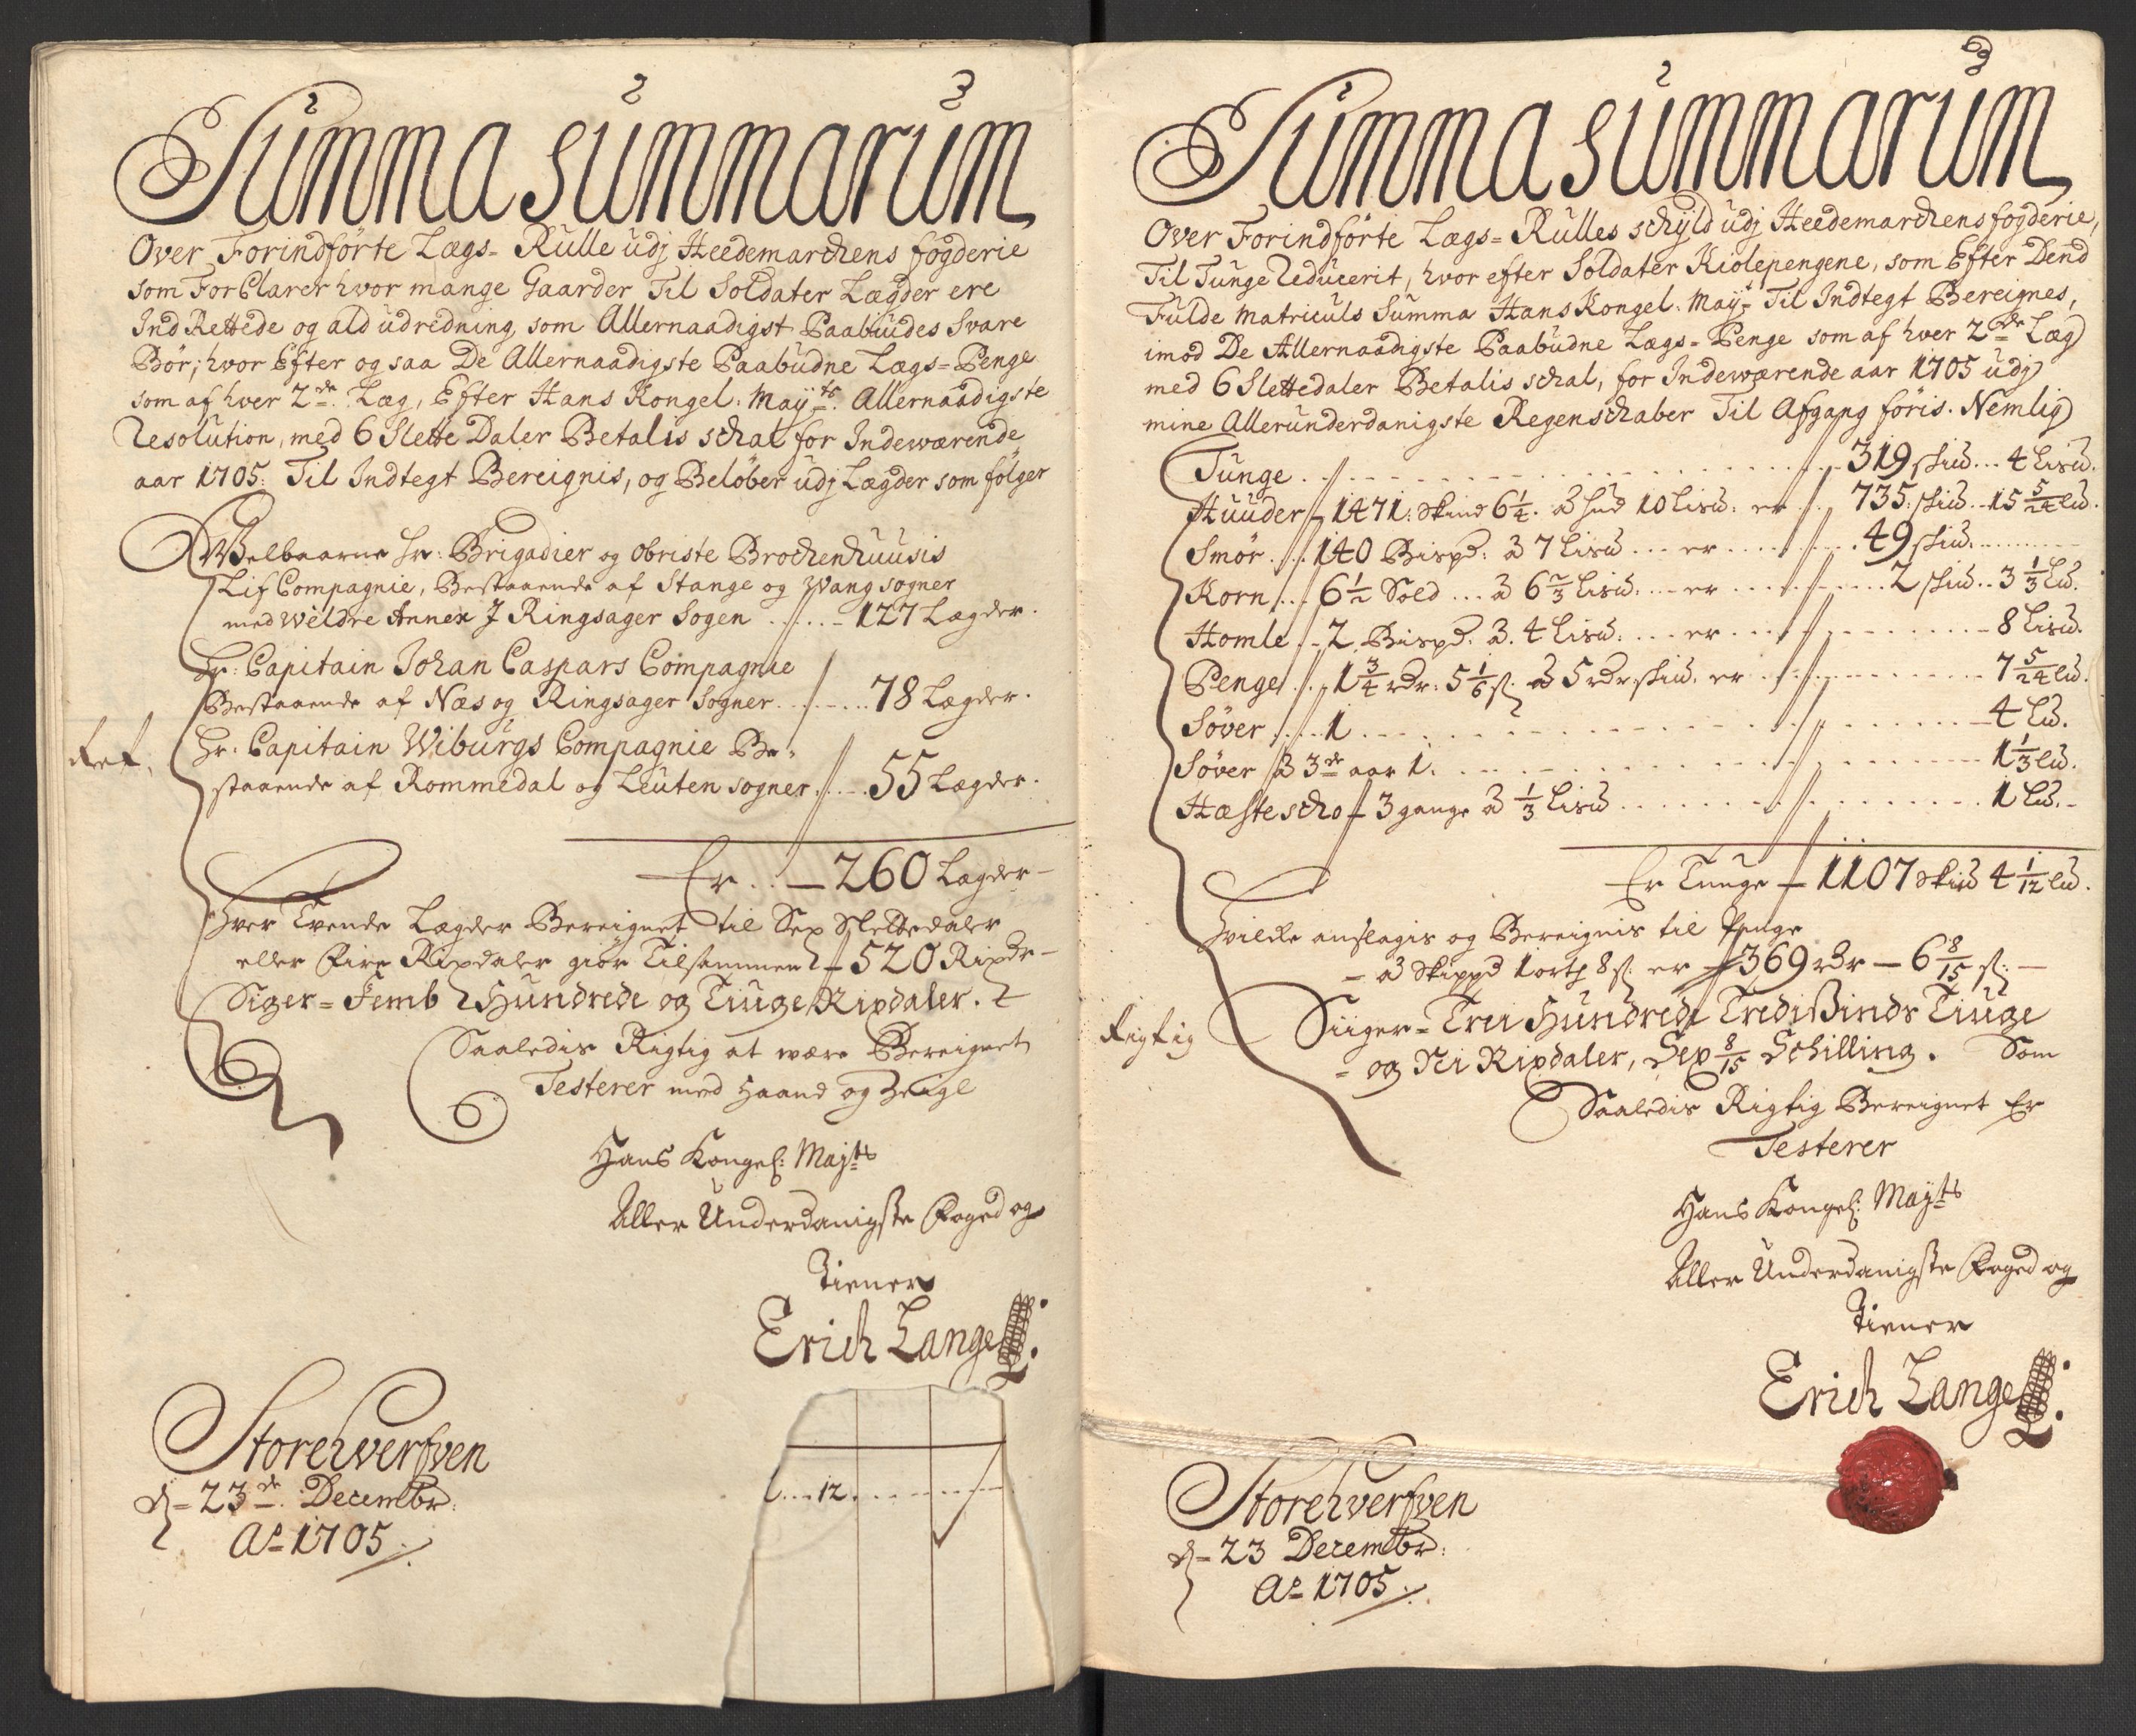 Summa summarum
Over Forindförte Lægs-Rulle udj Heedemarckens fogderie
som ForClarer hvor mange Gaarder Til Soldater Lægder ere
IndRettede og ald udredning, som Allernaadigst Paabuudes Svare
Bör; hvor Efter og saa De Allernaadigste Paabudne Lægs-Penge
som af hver 2de Læg, Efter Hans Kongel: Mayts: Allernaadigste
Resolution, med 6 Slette Daler Betalis schal for Indewærende
aar 1705: Til Indtegt Bereignis, og Belöber udj Lægder som fölger
Welbaarne Hr: Brigadier og Obriste Brochenhuusis
Lif Compagnie, Bestaaende af Stange og Wang sogner
med Weldre Annex J Ringsager Sogen ..... 127 Lægder.
Hr: Capitain Johan Caspars Compagnie
Bestaaende af Næs og Ringsager Sogner ..... 78 Lægder.
Hr: Capitain Wiburgs Compagnie Be-
staaende af Rommedal og Leuten sogner .... 55 Lægder.
Ret,
Er .. 260 Lægder
Hver Tvende Lægder Bereignet til Sex Slettedaler
eller Fire Rixdaler giör Tilsammen 520 Rixdr
Siger = Femb Hundrede og Tiuge Rixdaler.
Saaledis Rigtig at være Bereignet
Testerer med Haand og Zeigl
Hans Kongel: Mayts
Aller Underdanigste Foged og
Tiener
Erich Lange
Storehverfven
d = 23de Decembr:
Ao 1705
12
Summa summarum
Over Forindförte Lægs-Rulles schyld udj Heedemarckens fogderie,
Til Tunge Reducerit, hvor efter Soldater Kiolepengene, som Efter Dend
Fulde Matriculs Summa Hans Kongel: Mayts Til Indtegt Bereignes,
imod De Allernaadigste Paabudne Lægs-Penge som af hver 2de Læg
med 6 Slettedaler Betalis schal, for Indewærende aar 1705 udj
mine Allerunderdanigste Regenschaber Til Afgang föris. Nemlig
Tunge ..... 319 skid ... 4 Lisd.
Huuder 1471: Skind 6 1/4. à hud 10 Lisd: er .. 735: skid .. 15 5/24 Ld.
Smör .... 140 Bispd: à 7 Lisd ... er ...... 49 skid.
Korn ... 6 1/2 Sold ... à 6 2/3 Lisd: ... er ..... 2 skid .. 3 1/3 Ld.
Homle .. 2, Bispd: à. 4 Lisd: ... er ..... 8 Lisd.
Penge ... 1 3/4 rdr: 5 1/6 s. à 5 rdr skid. er ..... 7 5/24 Ld.
Söver .... 1 ..... 4 Ld.
Söver à 3de aar 1. ..... 1 1/3 Ld.
Hæstescho 3 gange à 1/3 Lisd ..... 1 Ld.
Er Tunge 1107 Skid 4 1/12 Ld.
Hvilcke anslagis og Bereignis til Penge
à Skippd 1 ort 8 s. er 369 rdr - 6 8/15 s.
Siiger = Trei Hundrede Tredissinds Tiuge
og Ni Rixdaler, Sex 8/15 Schilling. Som
Rigtig
Saaledis Rigtig Bereignet Er
Testerer
Hans Kongel: Mayts
Aller Underdanigste Foged og
Tiener
Erich Lange
Storehverfven
d = 23 Decembr:
Ao 1705